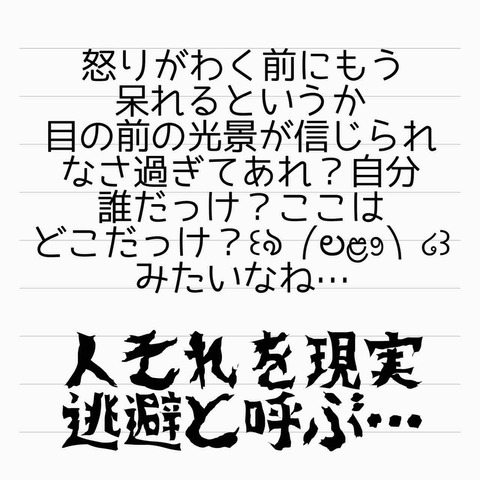 怒りがわく前にもう
呆れるというか
目の前の光景が信じられ
なさ過ぎてあれ？自分
誰だっけ？ここは
どこだっけ？꒰ঌ ༼అ༽ ໒꒱
みたいなね…
人それを現実
逃避と呼ぶ…